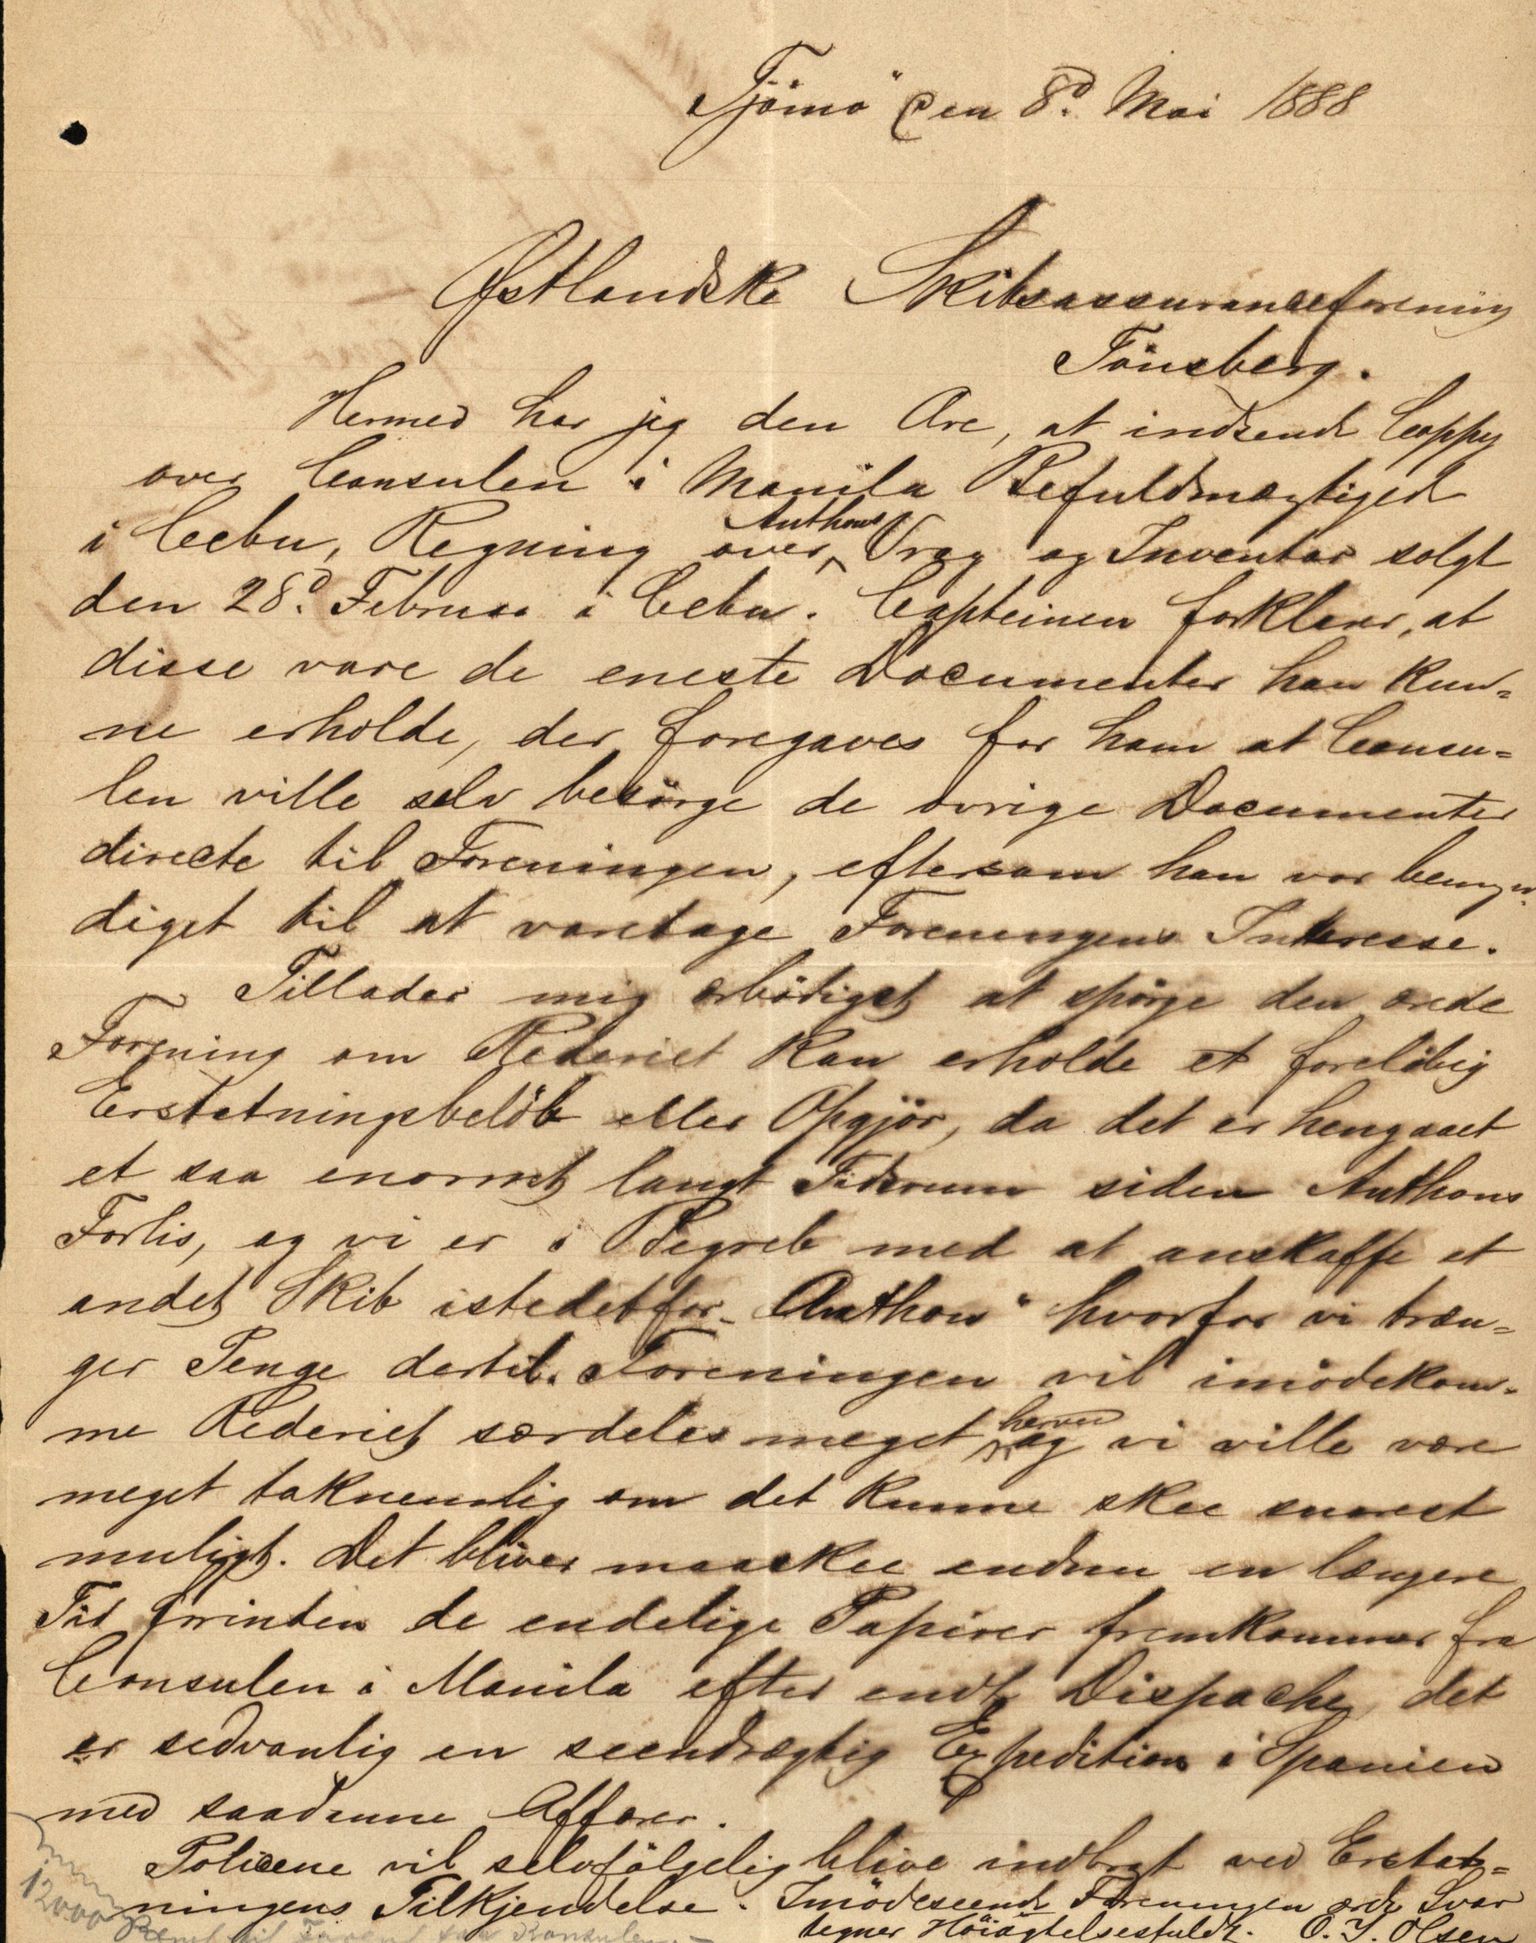 Tjömö den 8d. Mai 1888
Østlandske Skibsassuranceforening
Tönsberg.
Hermed har jeg den Ære, at indsende Coppy
over Consulen i Manila Befuldmægtiged
i Cebu, Regning over Anthons Vrag og Inventar solgt
den 28d. Februar i Cebu. Capteinen forklarer, at
disse vare de eneste Documenter han kun=
ne erholde, der foregaves for ham at Consu=
len ville selv besörge de övrige Documenter
directe til Foreningen, eftersom han var bemyn=
diget til at varetage Foreningens Interesse.
Tillader mig ærbödigst at spörge den ærede
Forening om Rederiet kan erholde et forelöbig
Erstatningsbelöb eller Opgjör, da det er hengaaet
et saa enormt langt Tidsrum siden Anthons
Forlis, og vi er i Begreb med at anskaffe et
andet Skib istedetfor "Anthon" hvorfor vi træn=
ger Penge dertil. Foreningen vil imödekom=
me Rederiet særdeles meget herved og vi ville være
meget taknemlig om det kunne skee snarest
muligt. Det bliver maaskee endnu en længere
Tid forinden de endelige Papirer fremkommer fra
Consulen i Manila efter endt Dispache, det
er sedvanlig en seendrægtig Expedition i Spanien
med saadanne Affærer.
Policene vil selvfölgelig blive indbragt ved Erstat=
ningens Tilkjendelse. Imödeseende Foreningen ærede Svar
tegner Höiagtelsesfuldt. O. J. Olsen
12000